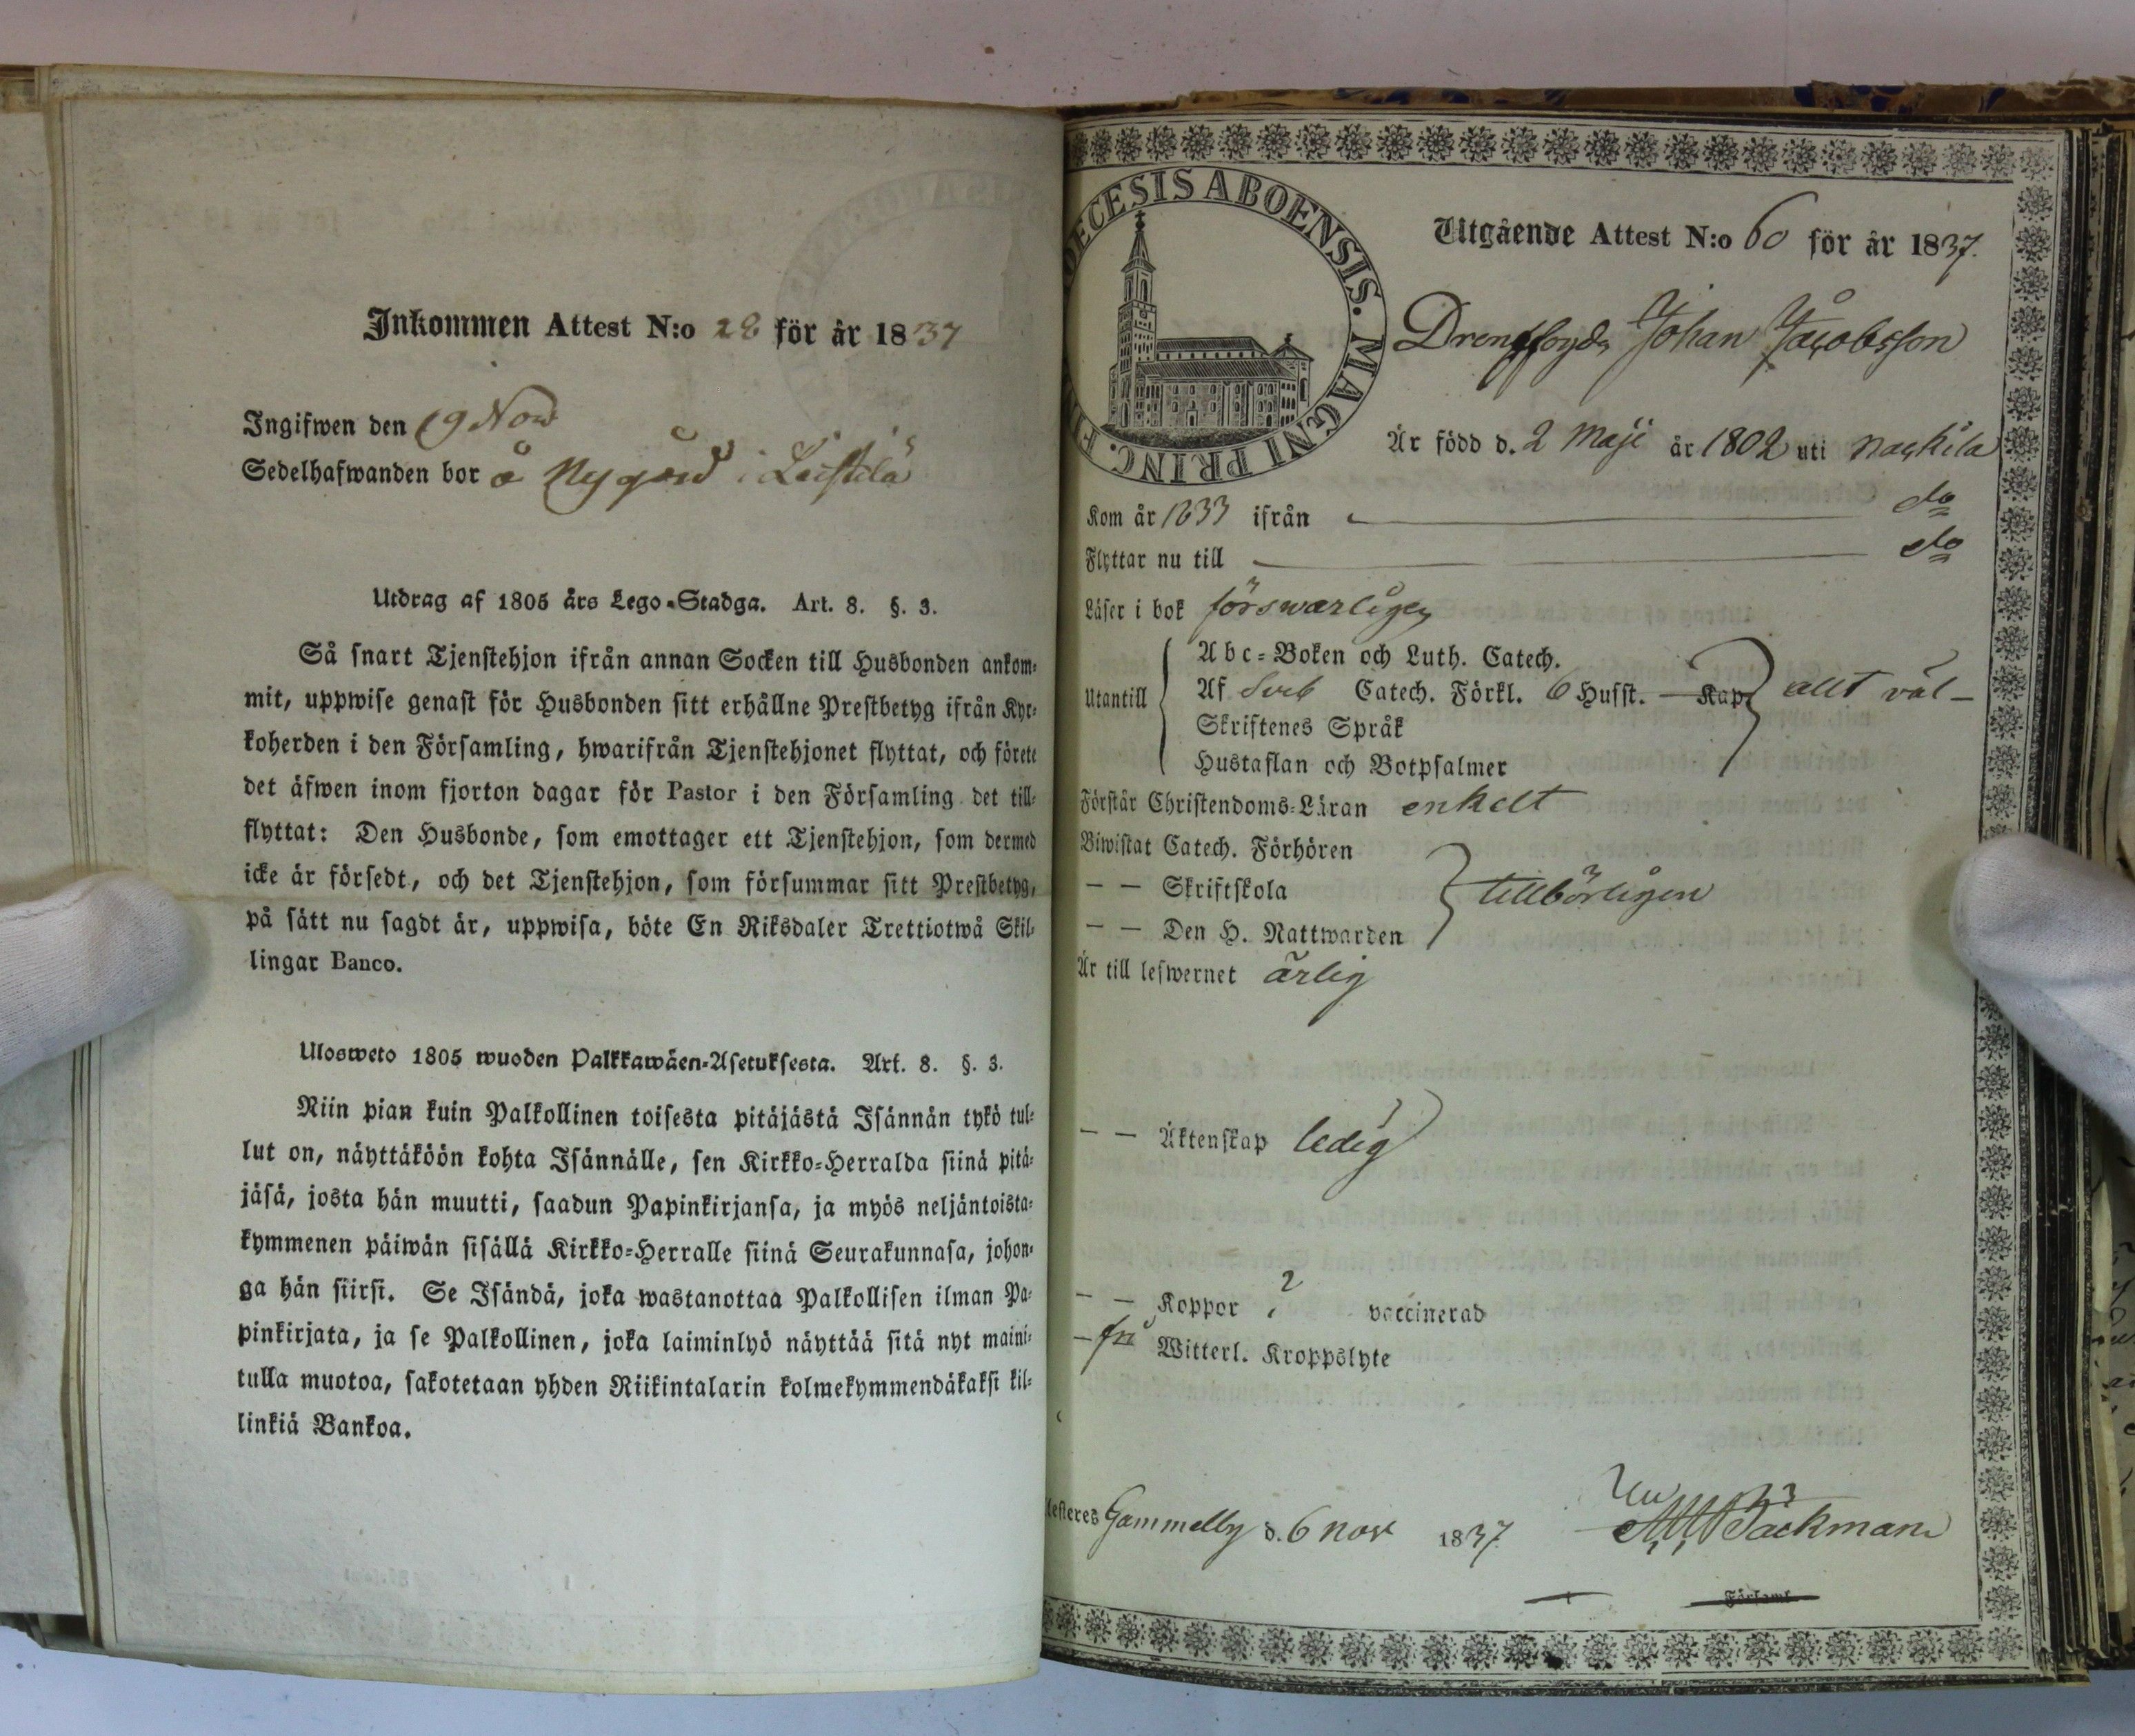 Inkommen Attest N:o 28 för år 1837
Ingifwen den 19 Nov
Sedelhafwanden bor å Nygård i Leistilä
Utdrag af 1805 års Lego-Stadga. Art. 8. §. 3.
Så snart Tjenstehjon ifrån annan Socken till Husbonden ankom-
mit, uppwise genast för Husbonden sitt erhållne Prestbetyg ifrån Kyr-
koherden i den Församling, hwarifrån Tjenstehjonet flyttat, och förete
det äfwen inom fjorton dagar för Pastor i den Församling det till-
flyttat: Den Husbonde, som emottager ett Tjenstehjon, som dermed
icke är försedt, och det Tjenstehjon, som försummar sitt Prestbetyg,
på sätt nu sagdt är, uppwisa, böte En Riksdaler Trettiotwå Skil-
lingar Banco.
Ulosweto 1805 wuoden Palkkawäen-Asetuksesta. Art. 8. §. 3.
Niin pian kuin Palkollinen toisesta pitäjästä Isännän tykö tul-
lut on, näyttäköön kohta Isännälle, sen Kirkko-Herralda siinä pitä-
jäsä, josta hän muutti, saadun Papinkirjansa, ja myös neljäntoista-
kymmenen päiwän sisällä Kirkko-Herralle siinä Seurakunnasa, johon-
ga hän siirsi. Se Isändä, joka wastanottaa Palkollisen ilman Pa-
pinkirjata, ja se Palkollinen, joka laiminlyö näyttää sitä nyt maini-
tulla muotoa, sakotetaan yhden Riikintalarin kolmekymmendäkaksi kil-
linkiä Bankoa.
DECESIS ABOENSIS. MAGNI PRINC. FIN
Utgående Attest N:o 60 för år 1837.
Drengfogdn Johan Jacobsson
Är född d. 2 Maji år 1802 uti Nackila
Kom år 1833 ifrån do
Flyttar nu till do
Läser i bok förswarligen
Utantill
Abc-Boken och Luth. Catech.
Af Sveb Catech. Förkl. 6 Husst. Kap. allt väl
Skriftenes Språk
Hustaflan och Botpsalmer
Förstår Christendoms-Läran enkelt
Biwistat Catech. Förhören
— — Skriftskola tillbörligen
— — Den H. Nattwarden
Är till lefwernet ärlig
— — Äktenskap ledig
— — Koppor ? vaccinerad
— fri Witterl. Kroppslyte
testeres Gammelby d. 6 nov 1837 Bäckman
Församl.